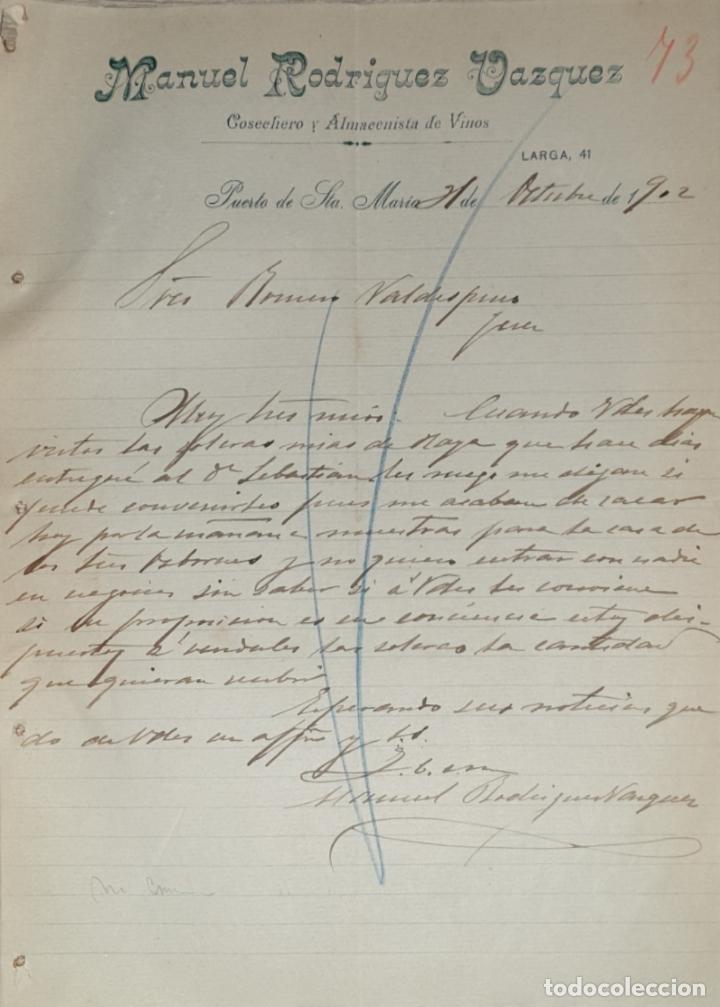 73
Manuel Rodriguez Vazquez
Cosechero y Almacenista de Vinos
LARGA, 41
Puerto de Sta. Maria 21 de Octubre de 1902
Sres Romero Valdespino
Jerez
Muy Sres mios: Cuando Vdes haya
vistos las soleras mias de Raya que hace dias
entregué al Dn Sebastian les ruego me digan si
puede convenirles pues me acaban de sacar
hoy por la mañana muestras para la casa de
los Sres Osbornes y no quiero entrar con nadie
en negocios sin saber si á Vdes les conviene
si su proposicion es en conciencia estoy dis-
puesto á venderles las soleras la cantidad
que quieran recibir
Esperando sus noticias que
do de Vdes un affmo y s.s.
Manuel Rodriguez Vazquez
todocoleccion
todocoleccion.net